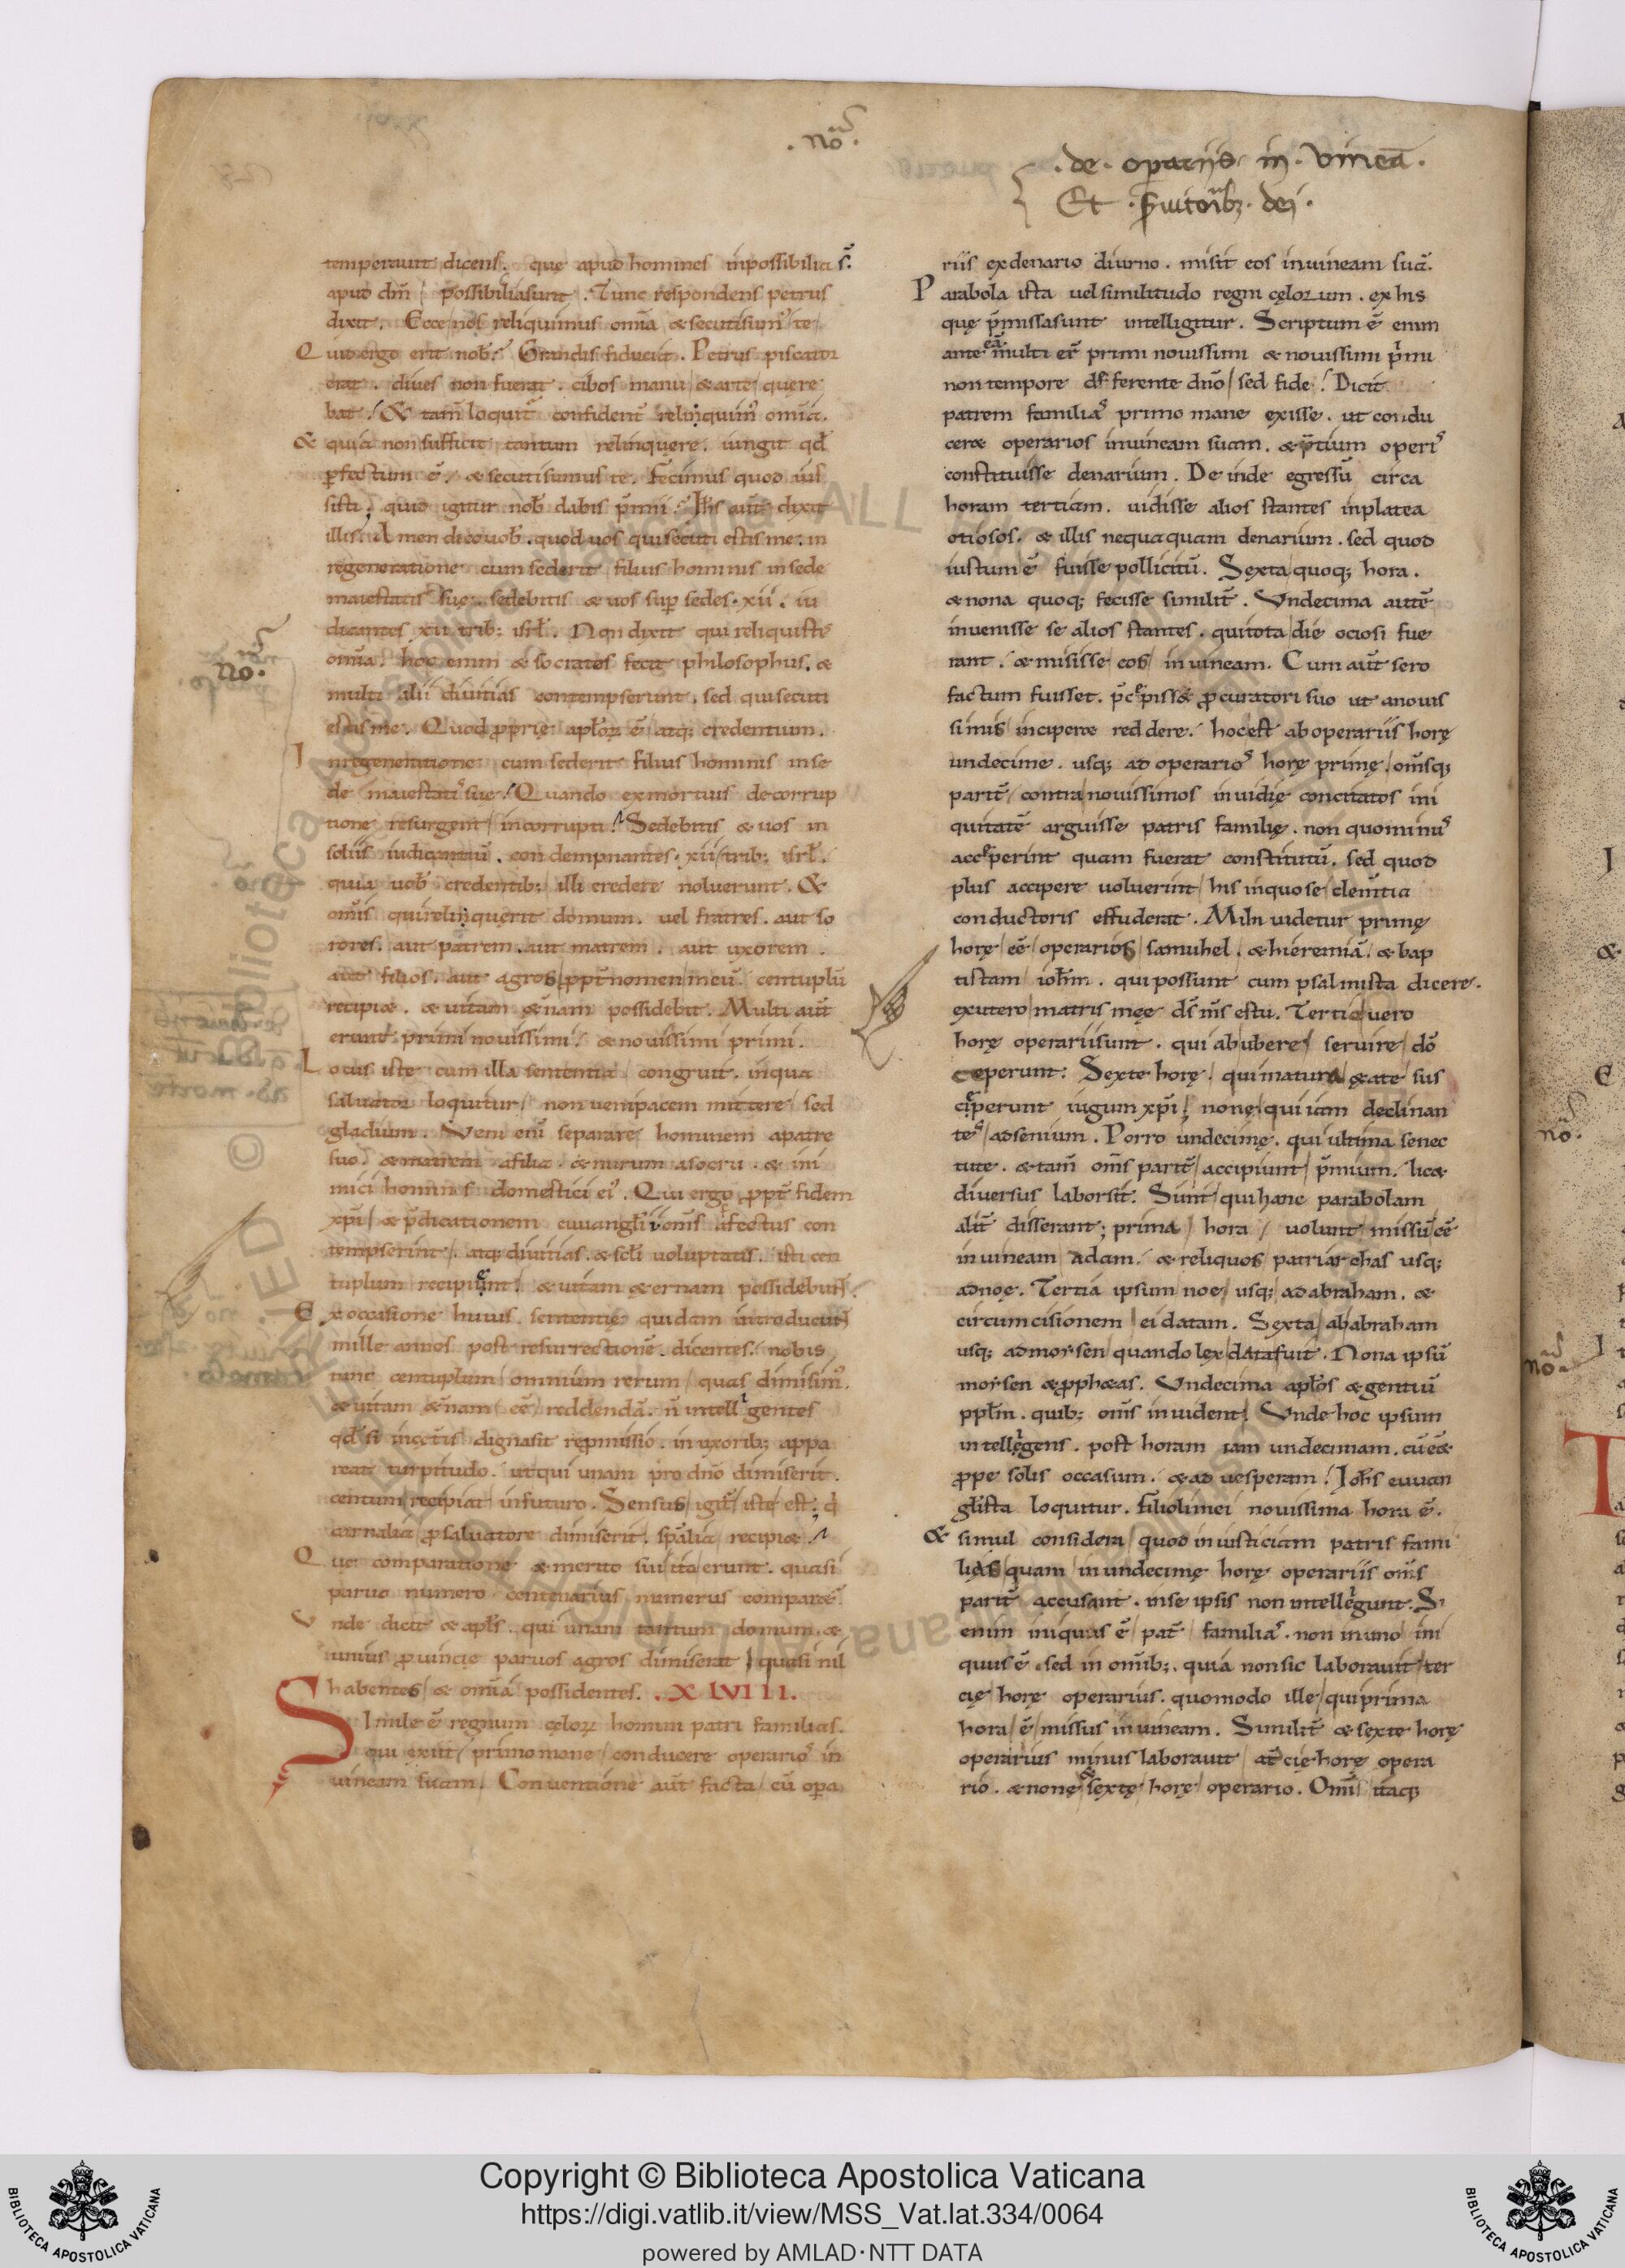 .nō.
.de. opariis in. vineā.
Et .s̄uitorib;. dei.
temperauit dicens. quę apud homines inpossibilia s̄.
apud dm̄ possibilia sunt. Tunc respondens petrus
dixit. Ecce nos reliquimus omīa & secuti sum᾽ te
Quid ergo erit nob̄. Grandis fiducia. Petrus piscator
erat. diues non fuerat. cibos manu & arte quere
bat. & tam̄ loquit̄ confident̄ relinquim᾽ omīa.
& quia non sufficit tantum relinquere. iungit qd̄
pfectum ē. & secuti sumus te. Fecimus quod ius
sisti; quid igitur nob̄ dabis p̄mii. Ih̄s aut̄ dixit
illis. Amen dico uob̄. quod uos qui secuti estis me. in
regeneratione cum sederit filius hominis in sede
maiestatis suę. sedebitis & uos sup sedes. xii. iu
dicantes xii trib; isrl̄. Non dixit qui reliquistis
omīa. hoc enim & socrates fecit philosophus. &
nō.
multi alii diuitias contempserunt. sed qui secuti
estis me. Quod pprię apl̄oꝝ ē atq; credentium.
In regeneratione cum sederit filius hominis in se
de maiestatis suę. Quando ex mortuis de corrup
tione resurgent incorrupti. Sedebitis & uos in
soliis iudicantiū. condempnantes. xii trib; isrl̄.
quia uob̄ credentib; illi credere noluerunt. &
om̄is qui relinquerit domum. uel fratres. aut so
rores. aut patrem. aut matrem. aut uxorem.
aut filios. aut agros ppt̄ nomen meū. centuplū
recipi&. & uitam ęt̄nam possidebit. Multi aut̄
erunt primi nouissimi. & nouissimi primi.
Locus iste cum illa sententia congruit. in qua
saluator loquitur non ueni pacem mittere sed
gladium. Veni eni᾽ separare hominem a patre
suo. & matrem a filia. & nurum a socru. & ini
mici hominis domestici ei᾽. Qui ergo ppt̄ fidem
xp̄i & p̄dicationem euuangl̄ii om̄s affectus con
tempserint. atq; diuitias. & scl̄i uoluptatis. isti cen
tuplum recipient. & uitam ęternam possidebunt.
Ex occasione huius sententię quidam introducunt
mille annos post resurrectionē. dicentes. nobis
tunc centuplum omnium rerum quas dimisim᾽.
& uitam ęt̄nam eē reddendā. n̄ intelligentes
qd̄ si in cęt̄is digna sit repmissio. in uxorib; appa
reat turpitudo. ut qui unam pro dn̄o dimiserit.
centum recipiat in futuro. Sensus igit̄ iste est. q̄
carnalia p saluatore dimiserit. spālia recipi&.
Quę comparatione & merito sui ita erunt. quasi
paruo numero centenarius numerus comparet̄.
Vnde dicit & apl̄s. qui unam tantum domum. &
unius puincię paruos agros dimiserat quasi nil
habentes & omīa possidentes. .XLVIIII.
Simile ē regnum cęloꝝ homini patri familias.
qui exiit primo mane conducere operarios in
uineam suam. Conuentione aut̄ facta cū opa
riis ex denario diurno. misit eos in uineam suā.
Parabola ista uel similitudo regni cęlorum. ex his
quę p̄missa sunt intelligitur. Scriptum ē enim
ante eā multi ert̄ primi nouissimi & nouissimi p̄mi
non tempore dif ferente dn̄o sed fide. Dicit
patrem familias primo mane exisse. ut condu
cer& operarios in uineam suam. & p̄tium operis
constituisse denarium. De inde egressū circa
horam tertiam. uidisse alios stantes in platea
otiosos. & illis nequaquam denarium. sed quod
iustum ē fuisse pollicitū. Sexta quoq; hora.
& nona quoq; fecisse similit̄. Vndecima autē
inuenisse se alios stantes. qui tota die ociosi fue
rant. & misisse eos in uineam. Cum aut̄ sero
factum fuisset. p̄cepiss& pcuratori suo ut a nouis
simis inciper& reddere. hoc est ab operariis horę
undecime. usq; ad operarios horę primę. om̄sq;
parit̄ contra nouissimos inuidię concitatos ini
quitatē arguisse patris familię. non quo minus
acceperint quam fuerat constitutū. sed quod
plus accipere uoluerint his in quo se clem̄tia
conductoris effuderat. Mihi uidetur primę
horę eē operarios samuhel. & hieremiā. & bap
tistam ioh̄m. qui possunt cum psalmista dicere.
ex utero matris meę ds̄ ms̄ es tu. Tertię uero
horę operarii sunt. qui ab ubere seruire dō
ceperunt. Sexte horę. qui matura ętate sus
ceperunt iugum xp̄i; nonę qui iam declinan
tes ad senium. Porro undecimę. qui ultima senec
tute. & tam̄ om̄s parit̄ accipiunt p̄mium. lic&
diuersus labor sit. Sunt qui hanc parabolam
alit̄ disserant; prima hora uolunt missū eē
in uineam adam. & reliquos patriarchas usq;
ad noę. Tertia ipsum noe usq; ad abraham. &
circumcisionem ei datam. Sexta ab abraham
usq; ad morsen quando lex data fuit. Nona ipsū
morsen & pph&as. Vndecima apl̄os & gentiū
ppl̄m. quib; om̄s inuident. Vnde hoc ipsum
intelligens. post horam iam undecimam. cū eē&
ppe solis occasum. & ad uesperam. Ioh̄s euuan
gl̄ista loquitur. Filioli mei nouissima hora ē.
& simul considera quod iniusticiam patris fami
lias quam in undecimę horę operariis om̄s
parit̄ accusant. in se ipsis non intelligunt. Si
enim iniquus ē pat̄ familias. non in uno ini
quus ē. sed in omib;. quia non sic laborauit ter
cię horę operarius. quomodo ille qui prima
hora ē missus in uineam. Similit̄ & sexte horę
operarius minus laborauit at̄cie horę opera
rio. & nonę & sextę horę operario. Om̄is itaq;
nō.
nō.
Copyright © Biblioteca Apostolica Vaticana
https://digi.vatlib.it/view/MSS_Vat.lat.334/0064
powered by AMLAD·NTT DATA
BIBLIOTECA APOSTOLICA VATICANA
BIBLIOTECA APOSTOLICA VATICANA